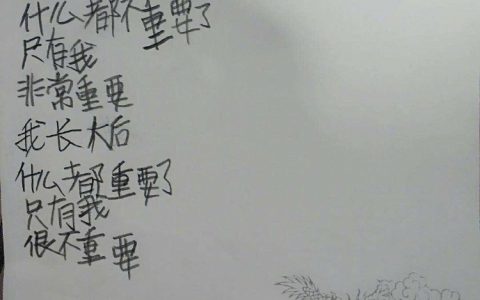 什么都不重要了
只有我
非常重要
我长大后
什么都重要了
只有我
很不重要